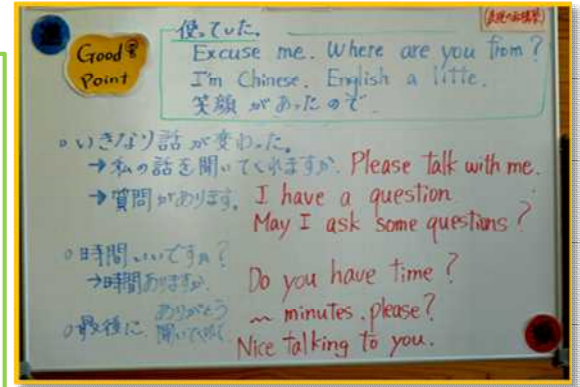 (表現のお構築)
Good
Point
使っていた。
Excuse me. Where are you from?
I'm Chinese. English a little.
笑顔があったので
○いきなり話が変わった。
→私の話を聞いてくれますか. Please talk with me.
→質問があります。 I have a question
May I ask some questions?
○時間いいですか?
→時間ありますか. Do you have time?
~ minutes, please?
○最後に ありがとう
聞いてくれて
Nice talking to you.